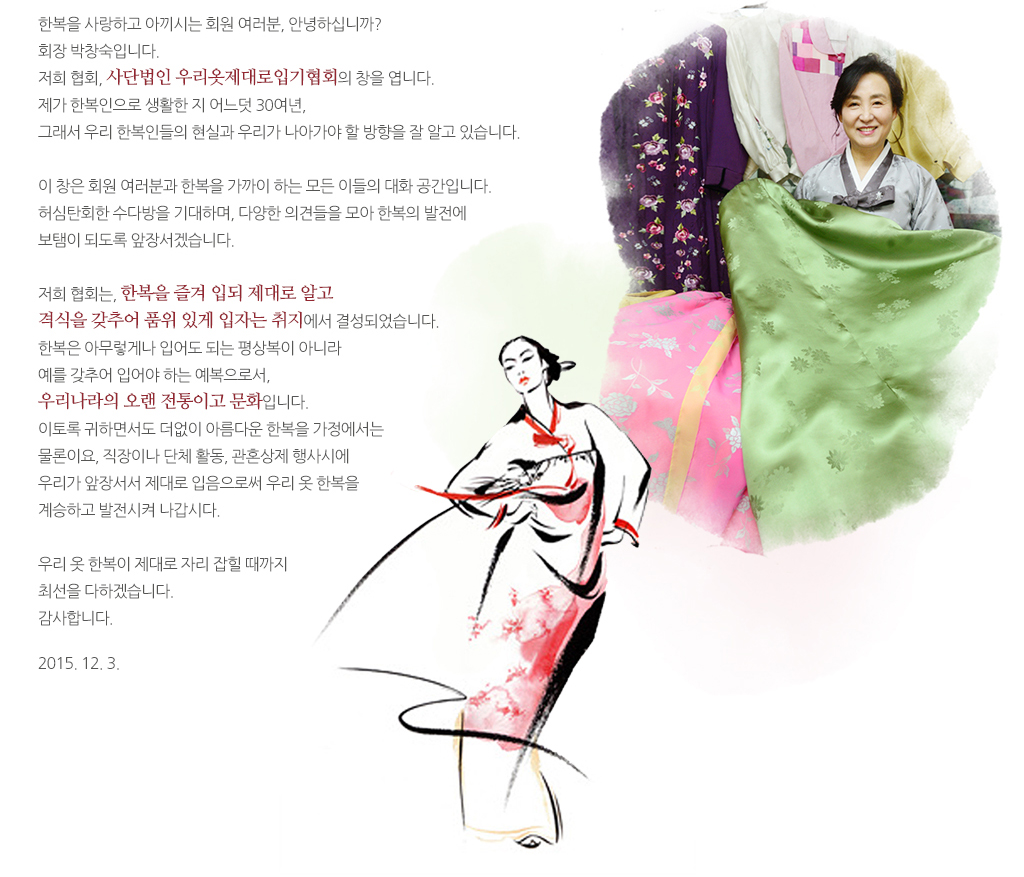 한복을 사랑하고 아끼시는 회원 여러분, 안녕하십니까?
회장 박창숙입니다.
저희 협회, 사단법인 우리옷제대로입기협회의 창을 엽니다.
제가 한복인으로 생활한 지 어느덧 30여년,
그래서 우리 한복인들의 현실과 우리가 나아가야 할 방향을 잘 알고 있습니다.
이 창은 회원 여러분과 한복을 가까이 하는 모든 이들의 대화 공간입니다.
허심탄회한 수다방을 기대하며, 다양한 의견들을 모아 한복의 발전에
보탬이 되도록 앞장서겠습니다.
저희 협회는, 한복을 즐겨 입되 제대로 알고
격식을 갖추어 품위 있게 입자는 취지에서 결성되었습니다.
한복은 아무렇게나 입어도 되는 평상복이 아니라
예를 갖추어 입어야 하는 예복으로서,
우리나라의 오랜 전통이고 문화입니다.
이토록 귀하면서도 더없이 아름다운 한복을 가정에서는
물론이요, 직장이나 단체 활동, 관혼상제 행사시에
우리가 앞장서서 제대로 입음으로써 우리 옷 한복을
계승하고 발전시켜 나갑시다.
우리 옷 한복이 제대로 자리 잡힐 때까지
최선을 다하겠습니다.
감사합니다.
2015. 12. 3.